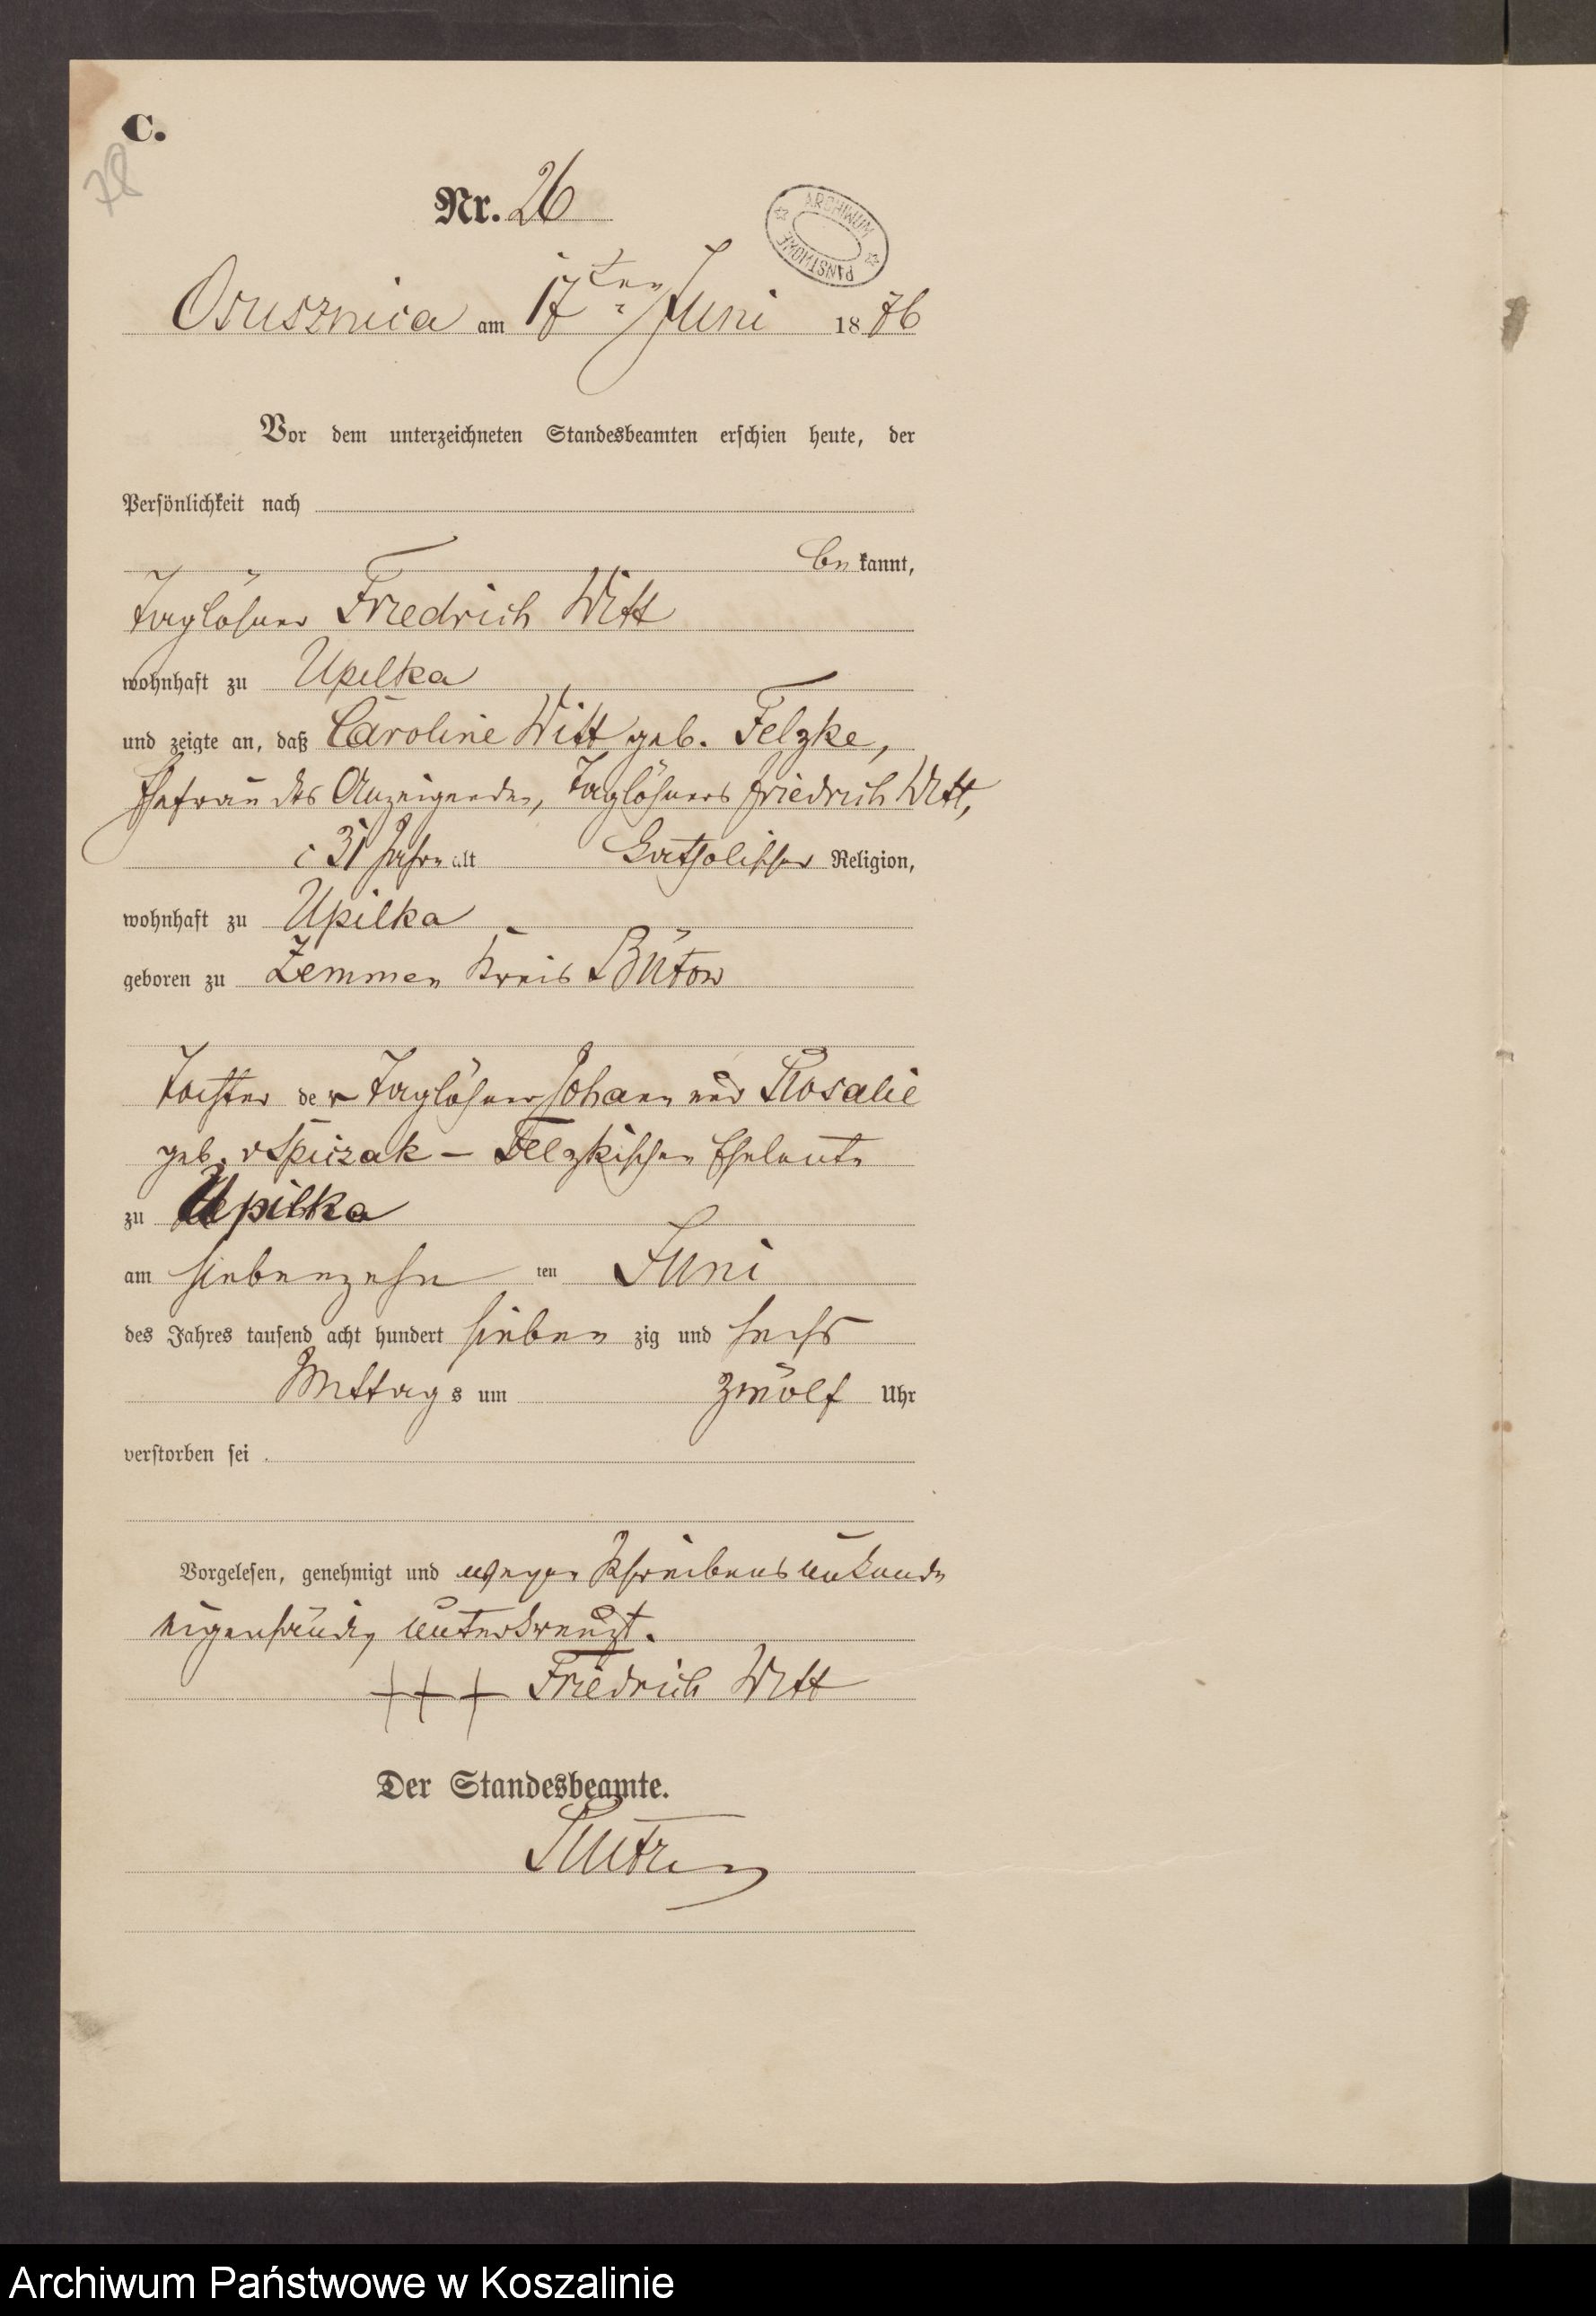 C.
78
Nr. 26
ARCHIWUM PAŃSTWOWE
Osusznica am 17ten Juni 1876
Vor dem unterzeichneten Standesbeamten erschien heute, der
Persönlichkeit nach
be kannt,
Taglöhner Friedrich Witt
wohnhaft zu Upilka
und zeigte an, daß Caroline Witt geb. Felzke,
Ehefrau des Anzeigenden, Taglöhners Friedrich Witt,
31 Jahre alt Catholischer Religion,
wohnhaft zu Upilka
geboren zu Zemmen Kreis Bütow
Tochter der Taglöhner Johann und Rosalie
geb. v Spiczak – Felzkischen Eheleute
zu Upilka
am siebenzehn ten Juni
des Jahres tausend acht hundert sieben zig und sechs
Mittag s um zwölf Uhr
verstorben sei
Vorgelesen, genehmigt und wegen Schreibensunkunde
eigenhändig unterkreuzt.
+++ Friedrich Witt
Der Standesbeamte.
Archiwum Państwowe w Koszalinie